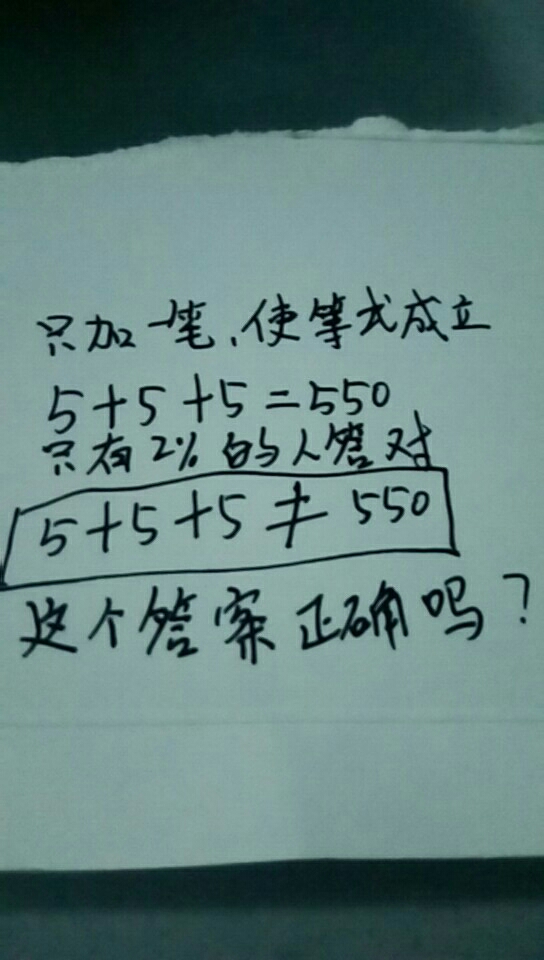 只加一笔,使等式成立
5+5+5=550
只有2%的人答对
5+5+5≠550
这个答案正确吗?